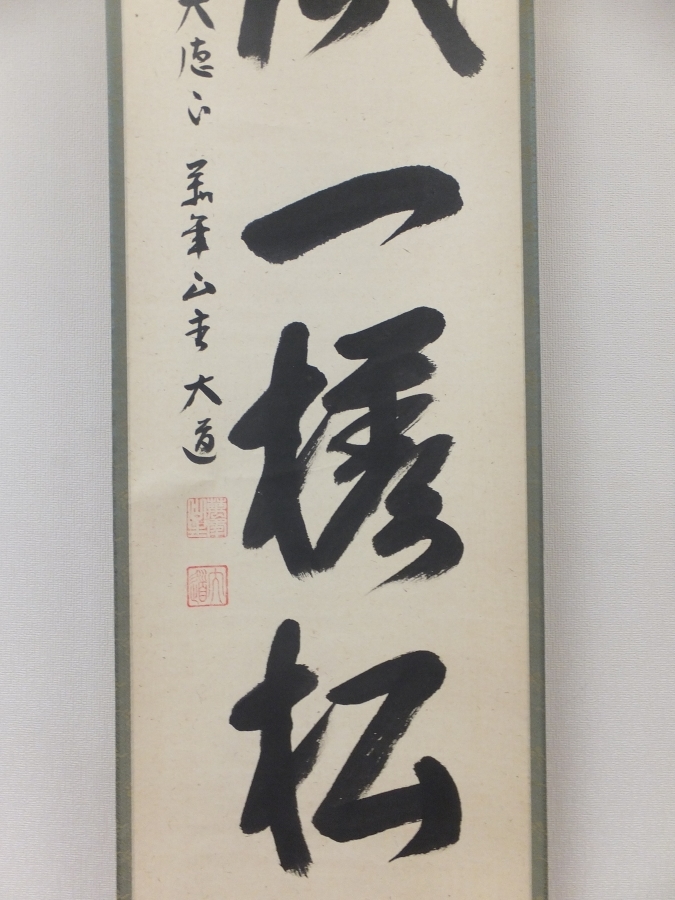 一様松
大徳下 萬年山主 大道
大道